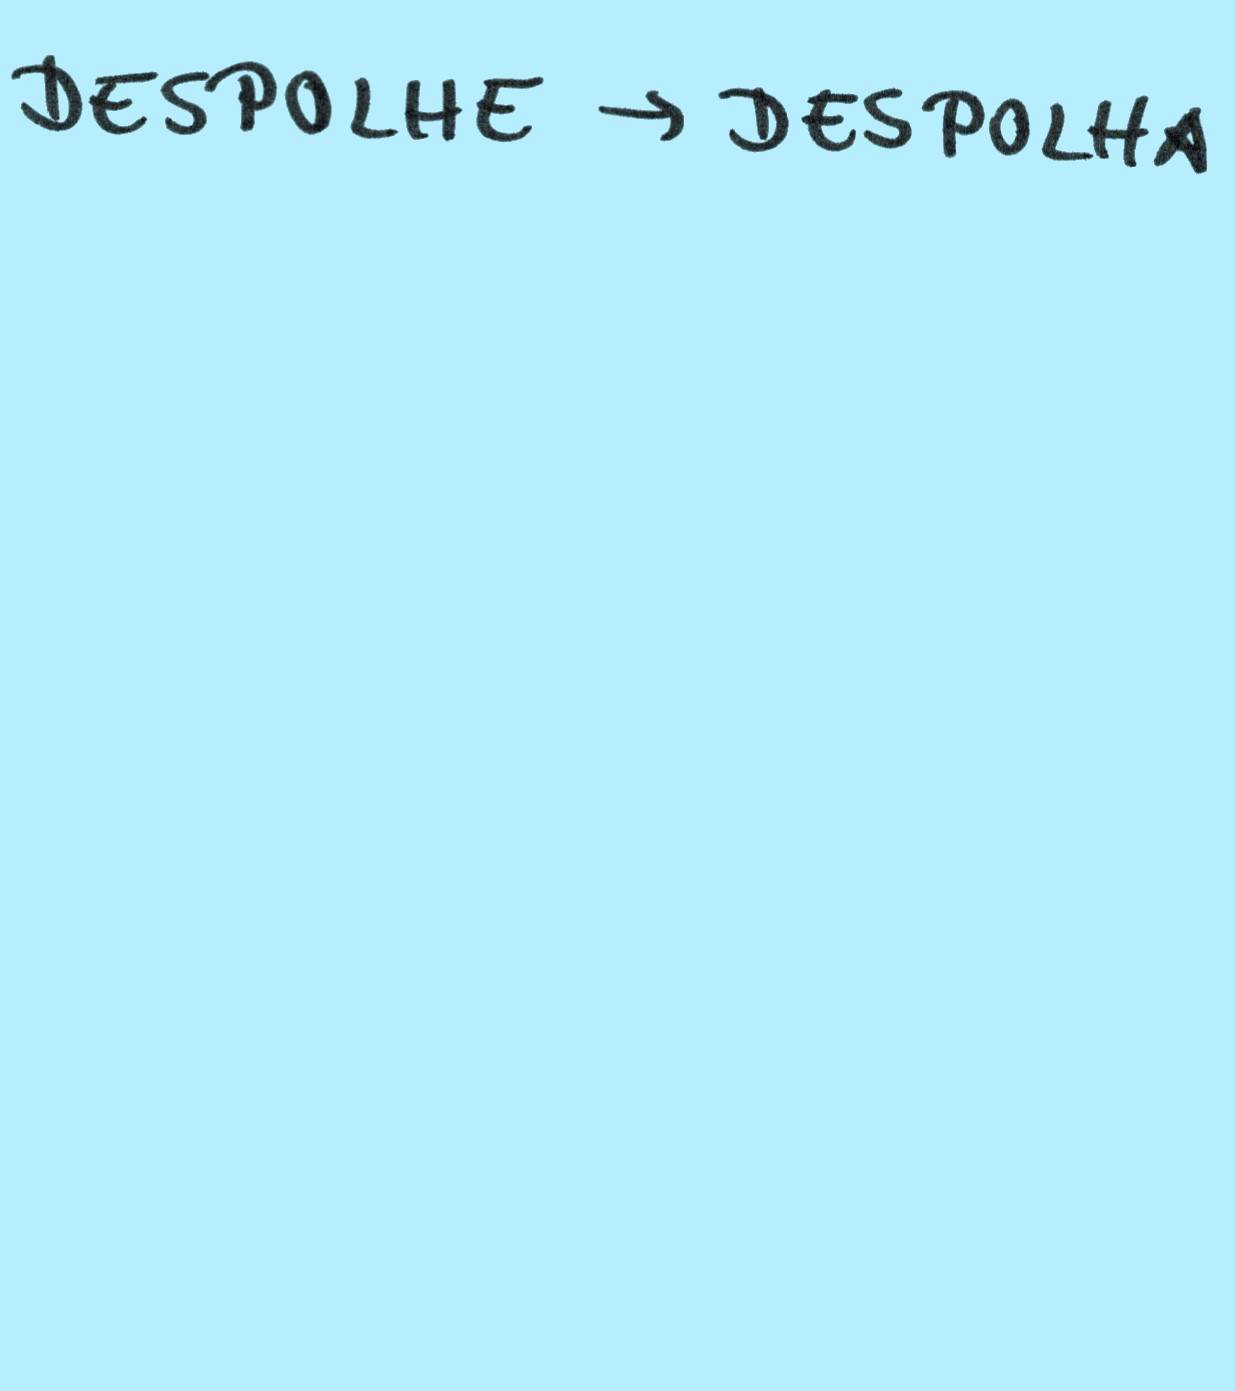 DESPOLHE → DESPOLHA